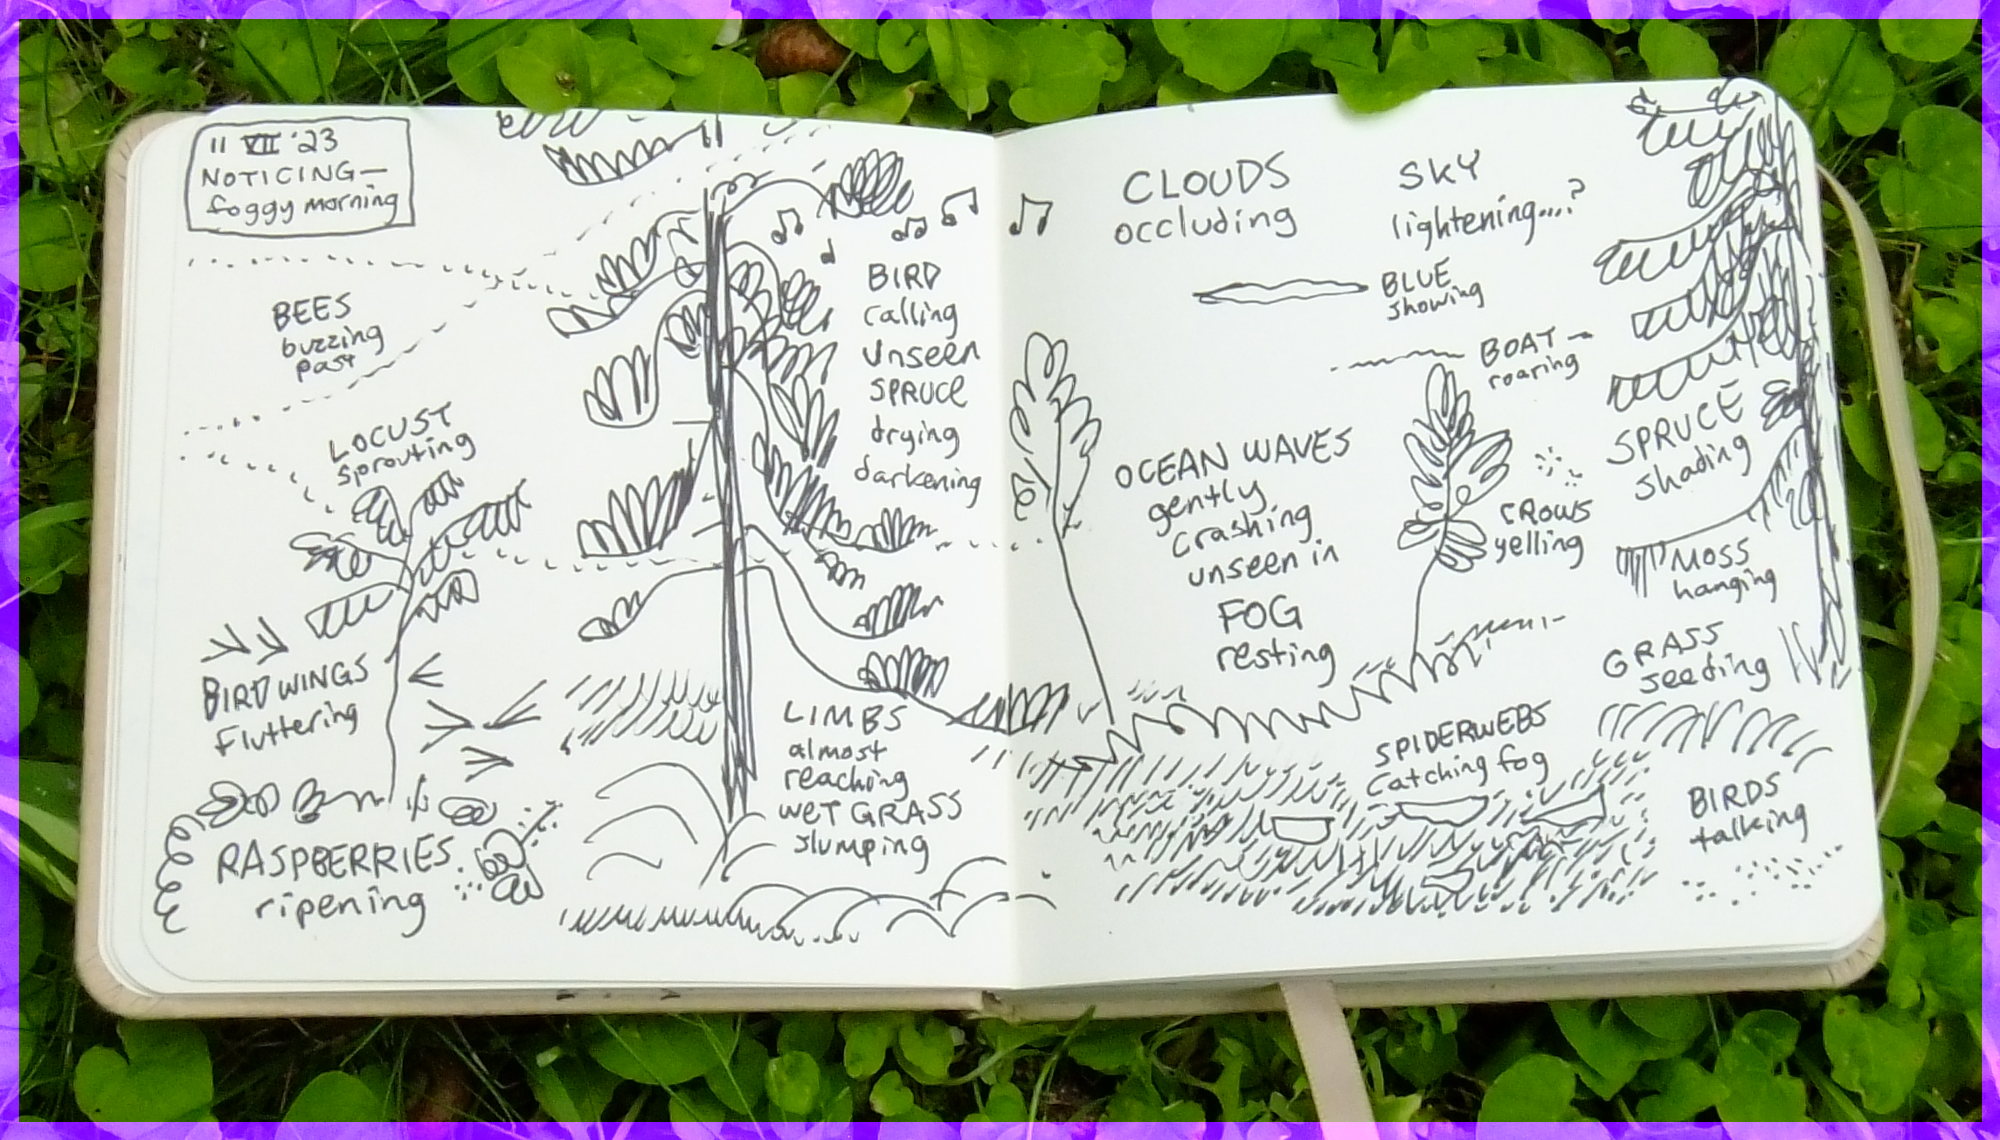 11 VII '23
NOTICING—
foggy morning
BEES
buzzing
past
LOCUST
sprouting
BIRD WINGS
fluttering
RASPBERRIES
ripening
BIRD
calling
unseen
SPRUCE
drying
darkening
LIMBS
almost
reaching
WET GRASS
slumping
CLOUDS
occluding
SKY
lightening....?
BLUE
showing
BOAT—
roaring
OCEAN WAVES
gently
crashing
unseen in
FOG
resting
CROWS
yelling
SPRUCE
shading
MOSS
hanging
GRASS
seeding
SPIDERWEBS
catching fog
BIRDS
talking